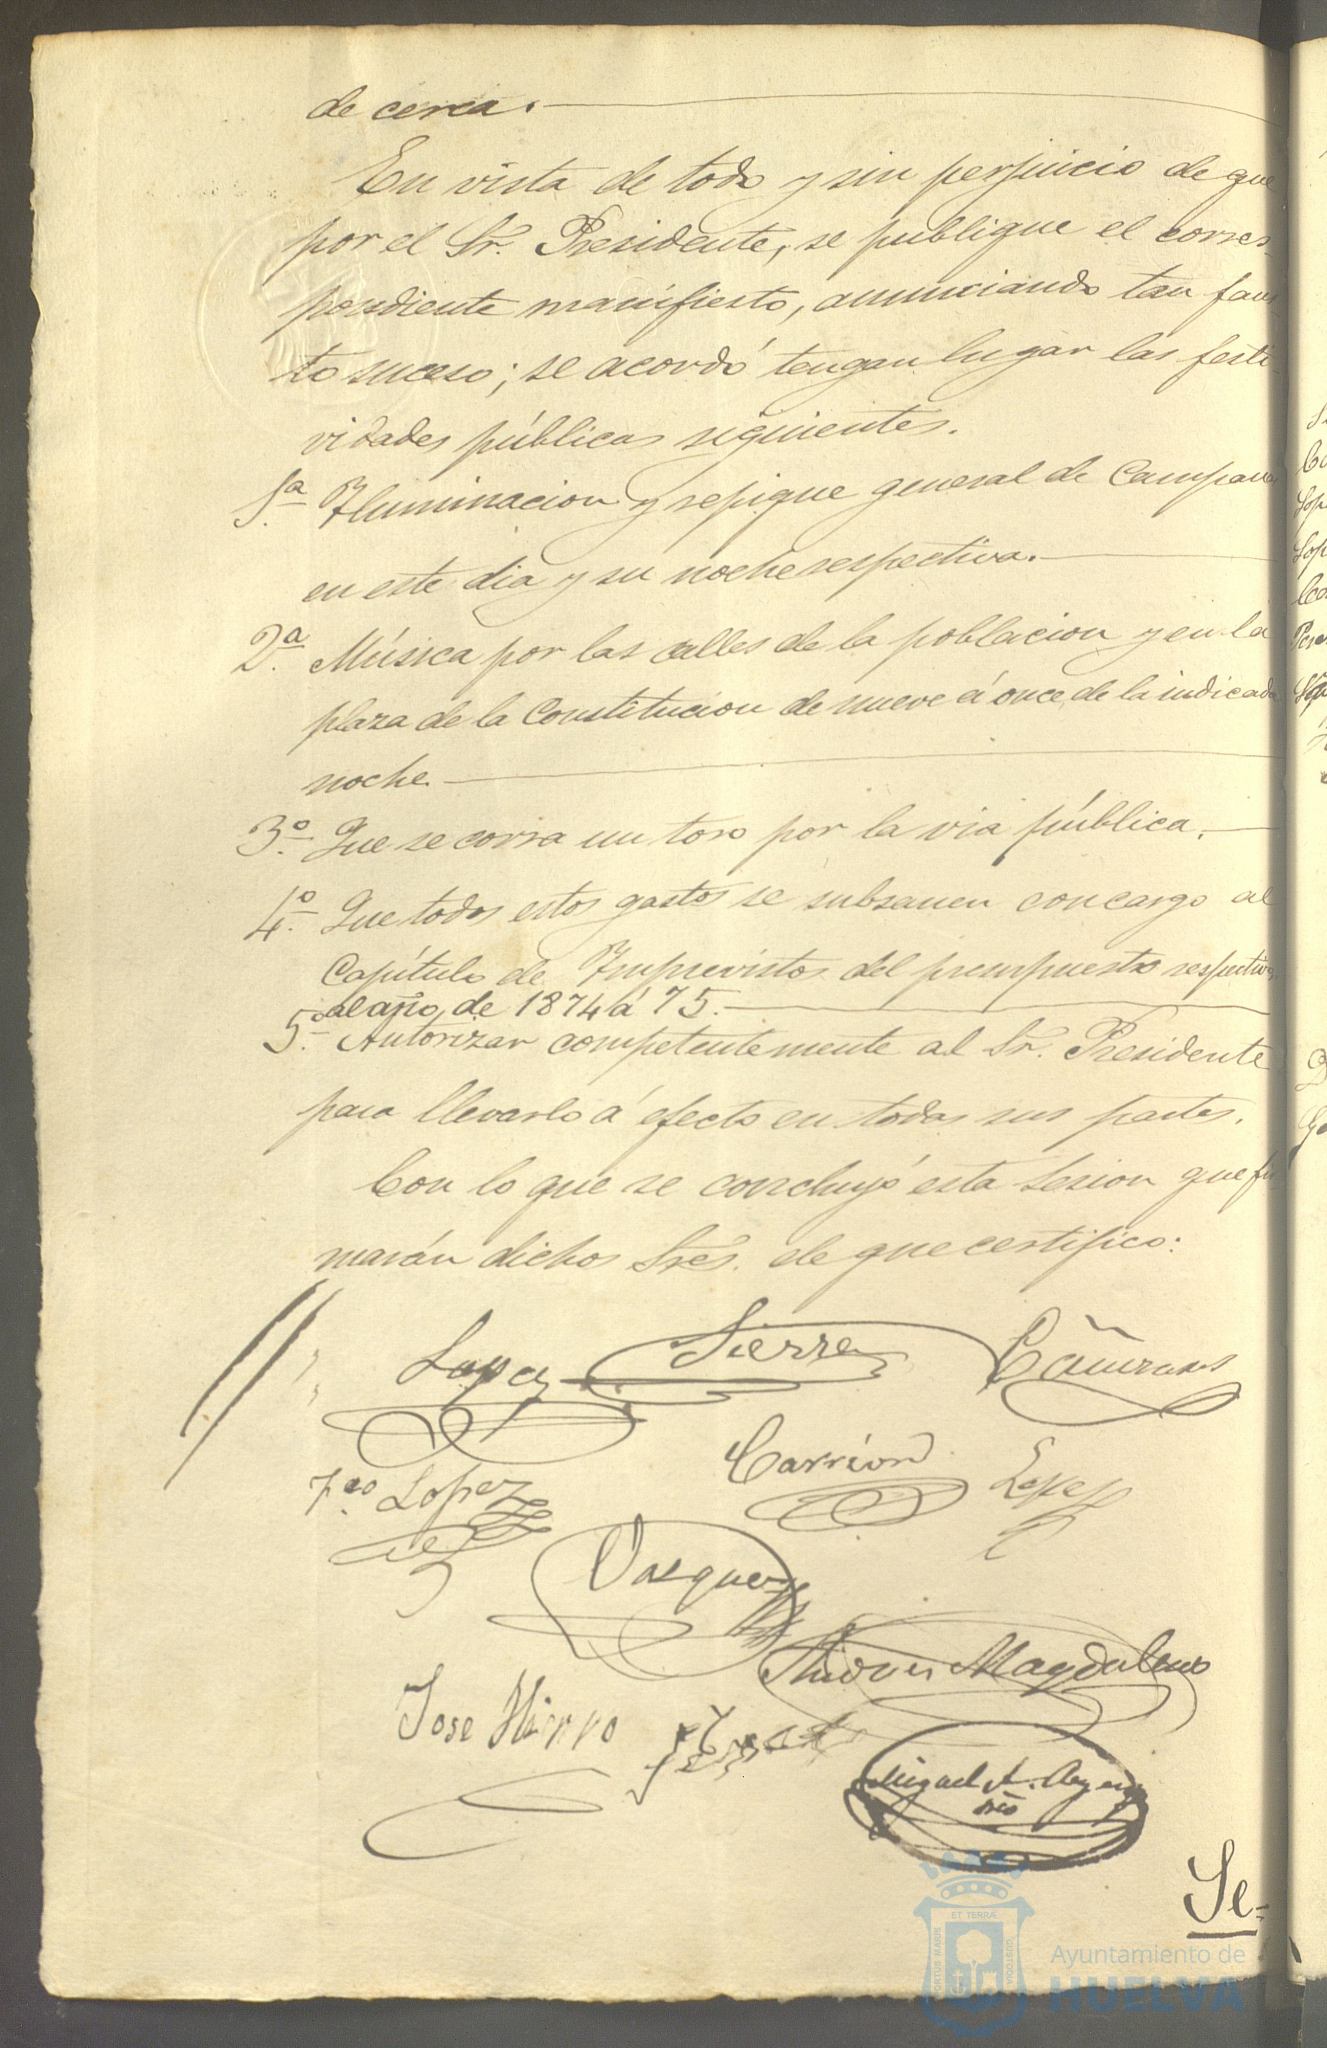 de cerca.
En vista de todo y sin perjuicio de que
por el Sr. Presidente, se publique el corres-
pondiente manifiesto, anunciando tan faus-
to suceso; se acordó tengan lugar las festi-
vidades públicas siguientes.
1.ª Iluminacion y repique general de Campanas
en este dia y su noche respectiva.
2.ª Música por las calles de la poblacion y en la
plaza de la Constitucion de nueve á once, de la indicada
noche
3.º Que se corra un toro por la via pública.
4.º Que todos estos gastos se subsanen con cargo al
Capítulo de Imprevistos del presupuesto respectivo
al año de 1874 á 75.
5.º Autorizar competentemente al Sr. Presidente
para llevarlo á efecto en todas sus partes.
Con lo que se concluyó esta sesion que fir
marán dichos Sres. de que certifico:
Lopez Sierra
Fco Lopez Carrion Lopez
Vasquez
Magdaleno
Jose Hierro
Miguel A.
Srio
Se-
ET TERRÆ
PORTUS MARIS
CUSTODIA
Ayuntamiento de
HUELVA